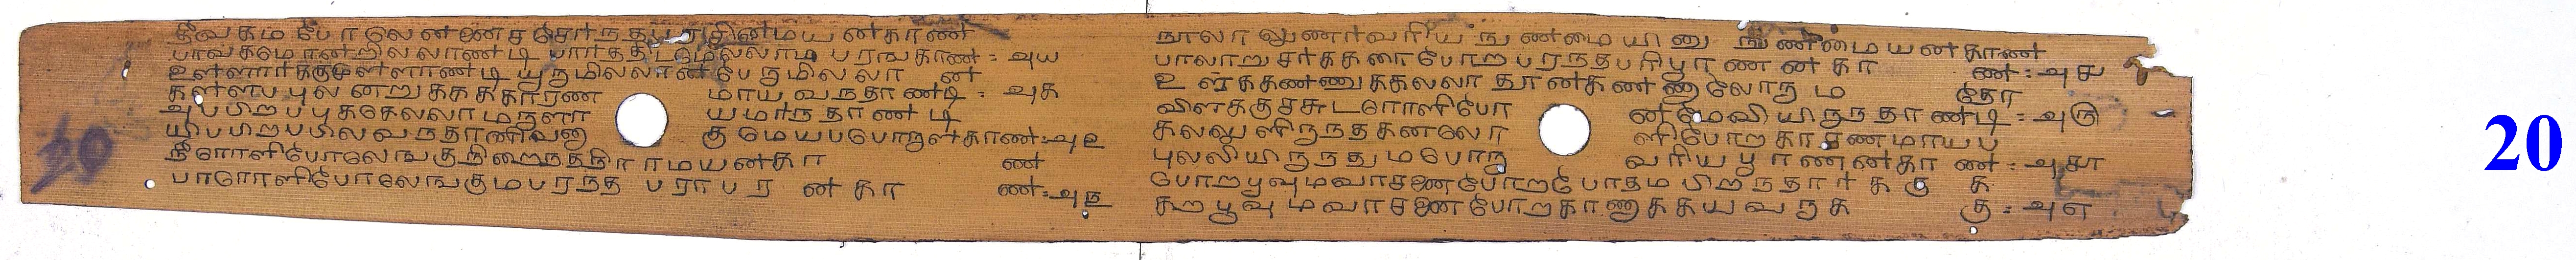 சீவகம போலெனனைச சோநதபரசினமயனகாண
பாவகமொனறிலலாணடி பாரததிடமெலலாம பரஙகாண : அய
உளளாாககுமுளளாணடி யுருமிலலான பேருமிலலா ன
களளப புலனறுககக காரண மாய வநதாணடி : அக
அபபிறபபுககெலலாமருளா யமாநதாணடி
யிபபிறபபிலவநதானிவனு கு மேயபபொருளகாண : அஉ
நீரொளிபோலெஙகுநிறைநதநிராமயனகா ண
பாரொளிபோலெஙகுமபரநத பராபர ன கா ண : அந
நூலாலுணாவரிய நுணமையினு நுணமையனகாண
பாலாறுசாககரைபோற பரநதபரிபூரணனகா ண : அசு
உளககணணுககலலா தூனகணணுலோரும தோ
விளககுசசுடரொளிபோ னமேவியிருநதாணடி : அரு
கலலுளிருநதகனலொ ளிபோறகாரணமாயப
புலலியிருநதுமபொரு வரியபூரணனகா ண : அசா
போறபூவுமவாசனைபோறபோதமபிறநதாாககு க
கறபூவுமவாசனைபோறகாணககயவருக கு : அஎ
20
20